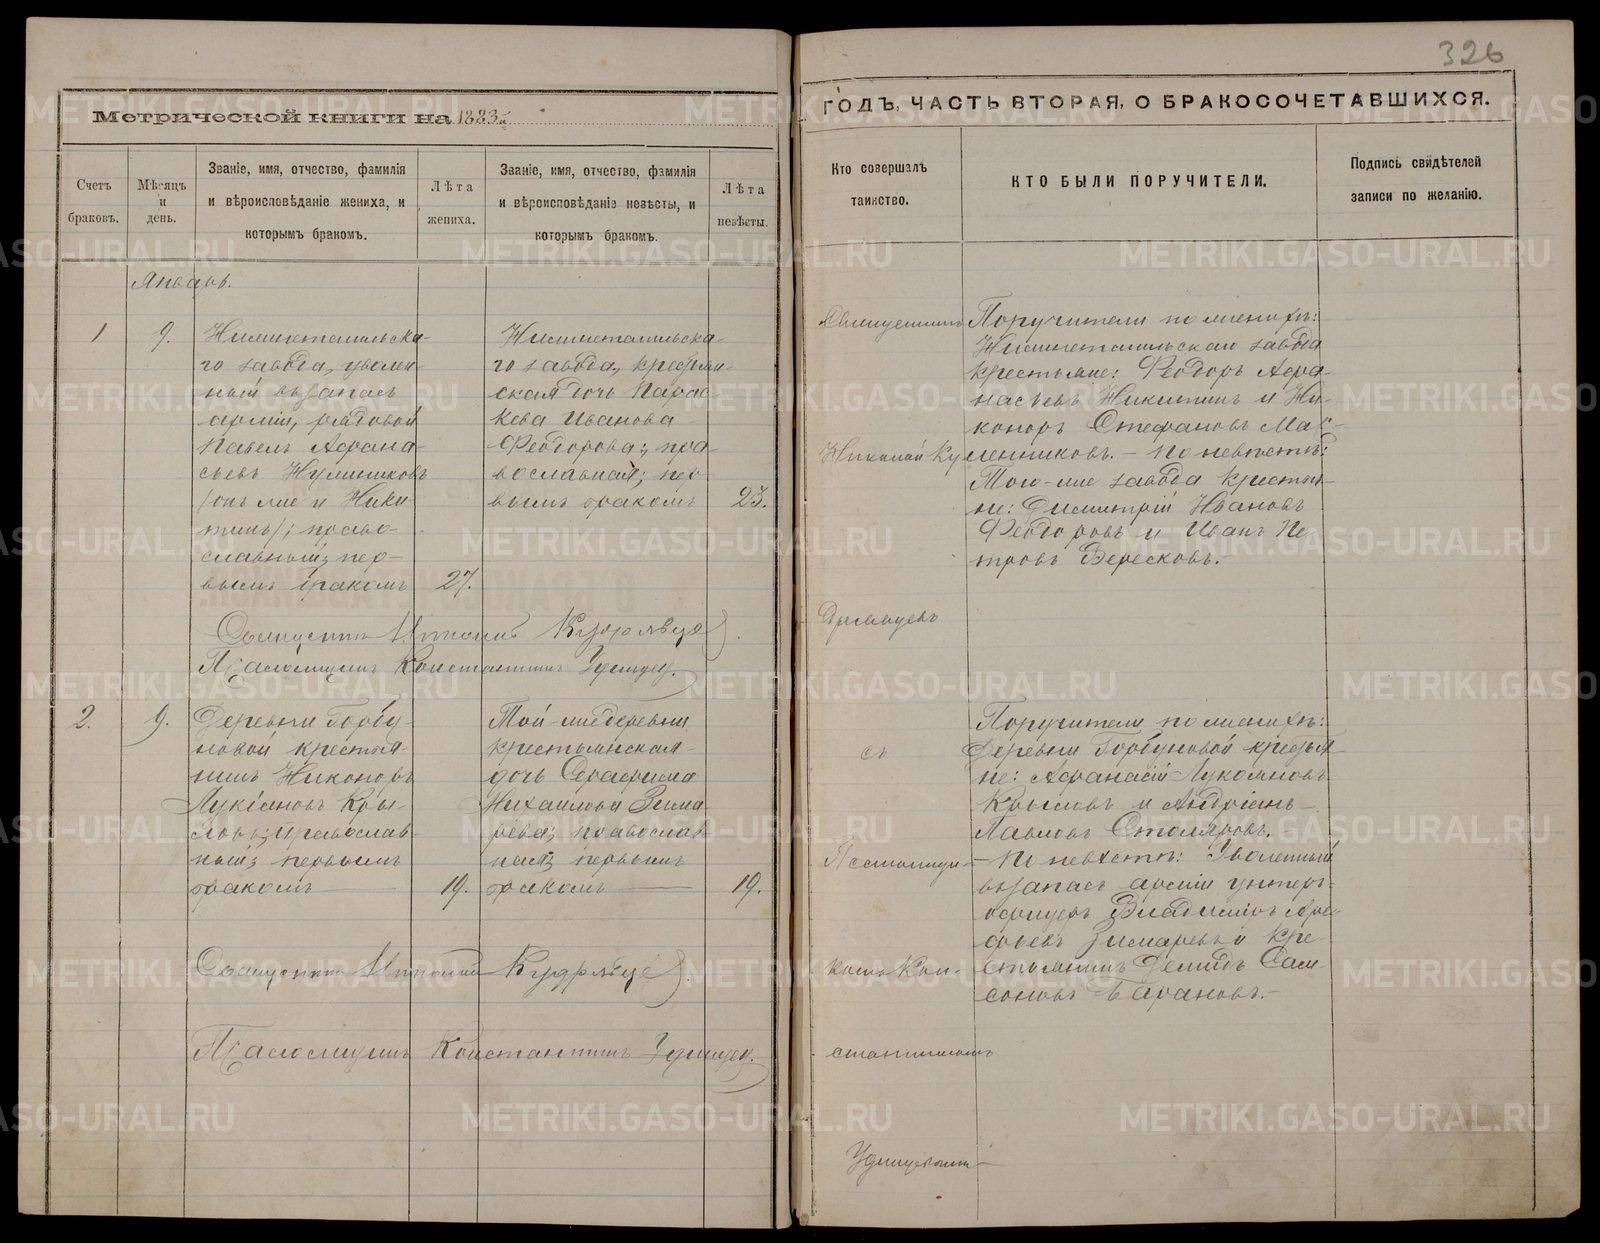 326
Метрической книги на 1883й
ГОДЪ, ЧАСТЬ ВТОРАЯ, О БРАКОСОЧЕТАВШИХСЯ.
Счетъ браковъ.
Мѣсяцъ и день.
Званіе, имя, отчество, фамилія
и вѣроисповѣданіе жениха, и
которымъ бракомъ.
Лѣта жениха.
Званіе, имя, отчество, фамилія
и вѣроисповѣданіе невѣсты, и
которымъ бракомъ.
Лѣта невѣсты.
Кто совершалъ
таинство.
КТО БЫЛИ ПОРУЧИТЕЛИ.
Подпись свидѣтелей
записи по желанію.
Январь.
1
9.
Нижнетагильска-
го завода, уволен-
ный въ запасъ
арміи, рядовой
Павелъ Афана-
сьевъ
(онъ же и Ники-
тинъ); право-
славный; пер-
вымъ бракомъ
27.
Нижнетагильска-
го завода, крестьян-
ская дочь Парас-
кева Иванова
Феодорова; пра-
вославная; пер-
вымъ бракомъ
23.
Священникъ
Николай Ку
съ
Псаломщи-
комъ Кон-
стантиномъ
Поручители по женихѣ:
Нижнетагильскаго завода
крестьяне: Феодоръ Афа-
насьевъ Никитинъ и Ни-
коноръ Стефановъ Мас-
ленниковъ. - По невѣстѣ:
Того-же завода крестья-
не: Димитрій Ивановъ
Феодоровъ и Иванъ Пе-
тровъ Вересковъ.-
Священникъ
Псаломщикъ Константинъ
2.
9.
Деревни Горбу-
новой крестья-
нинъ Никоноръ
Лукіановъ Кры-
ловъ; православ-
ный; первымъ
бракомъ
19.
Той-же деревни
крестьянская
дочь Серафима
Михаилова Зима
рева; православ-
ная; первымъ
бракомъ
19.
Поручители по женихѣ:
Деревни Горбуновой крестья-
не: Афанасій Лукояновъ
Крыловъ и Андріанъ
Павловъ Столяровъ.
- По невѣстѣ: Уволенный
въ запасъ арміи унтеръ-
офицеръ Владиміръ Аре-
фьевъ Зимаревъ и кре-
стьянинъ Демидъ Сам-
соновъ Барановъ.-
Священникъ
Псаломщикъ Константинъ
METRIKI.GASO-URAL.RU